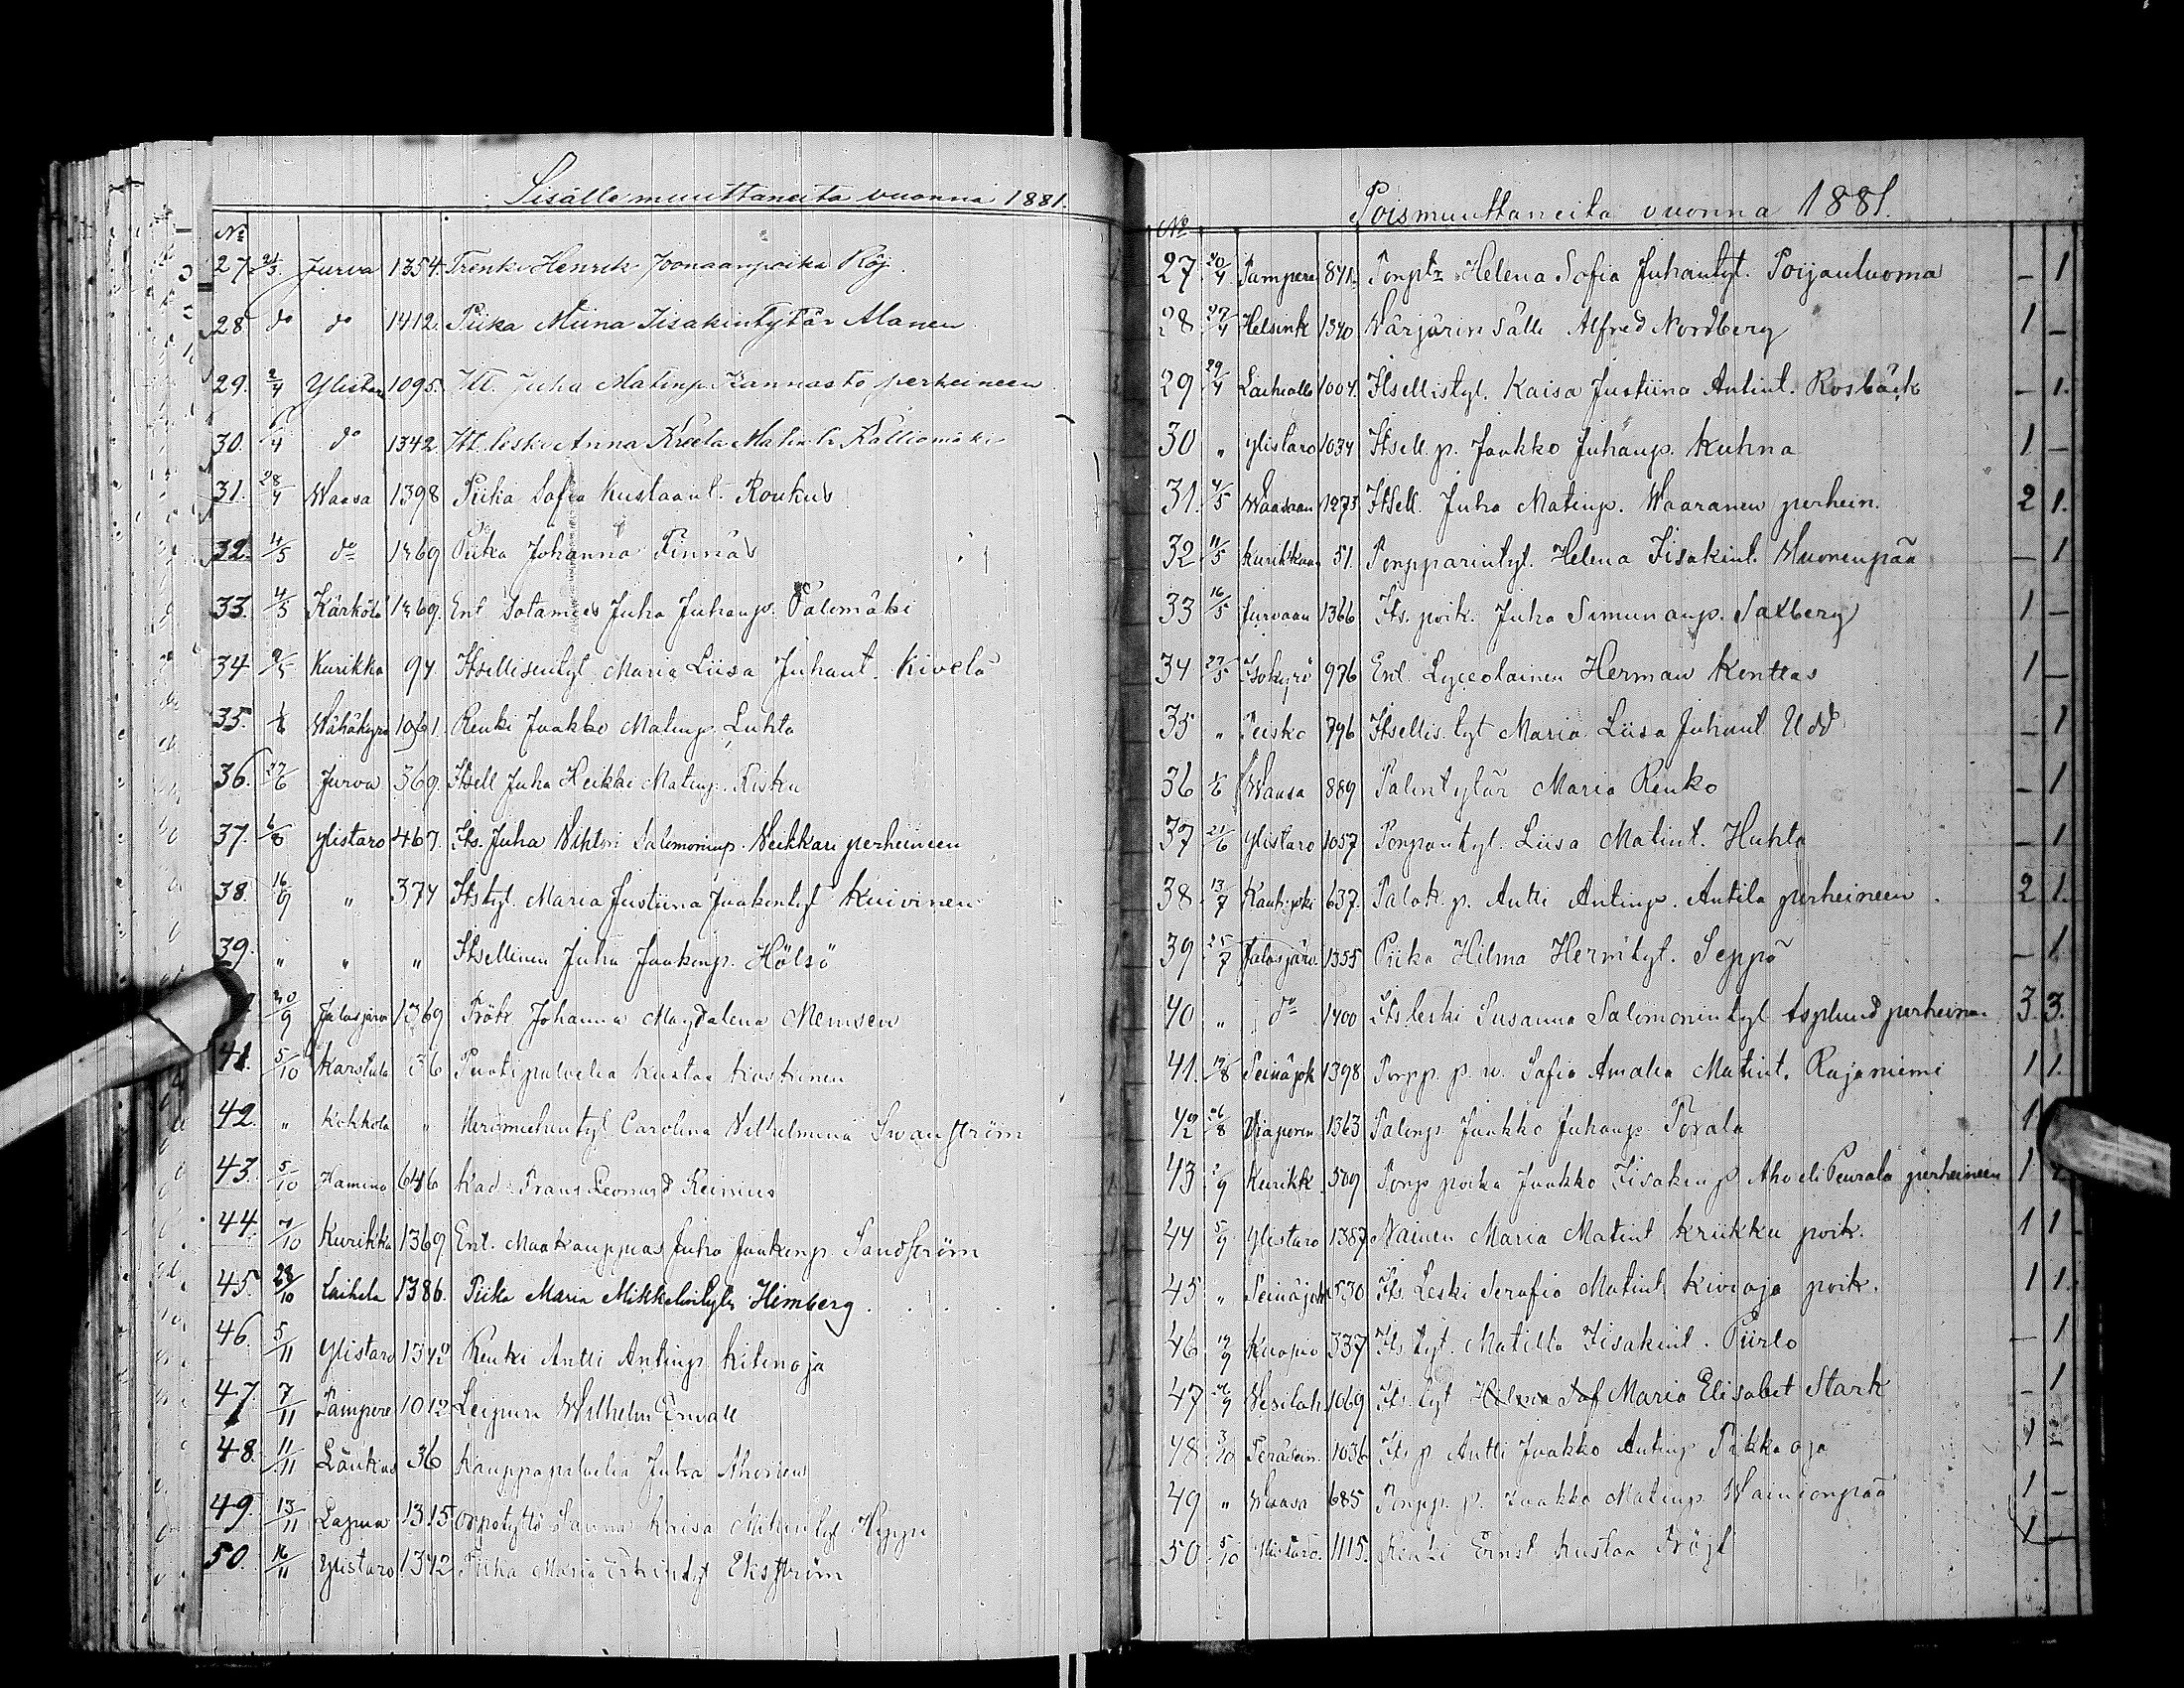 Sisälle muuttaneita vuonna 1881.
No
27. 21/3. Jurva 1354. Trenki Henrik Joonaanpoika Röj.
28. do do 1412. Piika Miina Iisakintytär Alanen
29. 2/4 Ylistaro 1095. Itl. Juha Matinp. Kannasto perheineen
30. 6/4 do 1342 Itl. leski Anna Kreeta Matint. Kalliomäki
31. 28/4 Waasa 1398 Piika Sofia Kustaant. Roukus
32. 4/5 do 1369 Piika Johanna Finnäs
33. 4/5 Kärkölä 1369. Ent Sotamies Juha Juhanp. Palomäki
34 Kurikka 94. Itsellisentyt. Maria Liisa Juhant. Kivelä
35. 1/6 Wähäkyrö 1061. Renki Jaakko Matinp. Luhta
36. 27/6 Jurva 369. Itsell Juha Heikki Matinp. Risku
37. 6/8 Ylistaro 467. Its. Juha Wihtori Salomoninp. Weikkari perheineen
38. 16/9 " 374 Itstyt. Maria Justiina Jaakontyt Kuivinen
39. " " " Itsellinen Juha Jaakonp. Hölsö
20/9 Jalasjärvi 1369 Frök. Johanna Magdalena Memsen
41. 5/10 Karstula 36 Puotipalvelia Kustaa Koskinen
42. " Kokkola " Herasmiehentyt. Carolina Wilhelmina Swanström
43. 5/10 Hamina 646 Kad. Frans Leonard Reinius
44. 7/10 Kurikka 1369 Ent. Maakauppias Juho Jaakonp. Sandström
45. 28/10 Laihela 1386. Piika Maria Mikkelintytr Himberg
46. 5/11 Ylistaro 1342 Renki Antti Antinp. Kitinoja
47. 7/11 Tampere 1012 Leipuri Wilhelm Enwall
48. 11/11 Länkiö 36 Kauppapalvelia Juha Ahonen
49. 13/11 Lapua 1315 Ottotyttö Sanna Kaisa Mikintyt Hyppi
50. 16/11 Ylistaro 1342 Piika Maria Erkintyt Ekström
Poismuuttaneita vuonna 1881.
No
27 20/4 Tampere 871. Ponptr Helena Sofia Juhantyt. Poijanluoma – 1
28 27/4 Helsink 1370 Wärjärin sälli Alfred Nordberg 1 –
29 29/4 Laihialle 1004. Itsellistyt. Kaisa Justiina Antint. Rosbäck – 1.
30 " Ylistaro 1034 Itsell. p. Jaakko Juhanp. Kuhna 1 –
31. 4/5 Waasaan 1273 Itsell. Juha Matinp. Waaranen perhein. 2 1.
32 11/5 Kurikkaan 51. Ponpparintyt. Helena Iisakint. Wuorenpää – 1
33 16/5 Jurvaan 1366 Its. poik. Juha Simunanp. Saxberg 1 –
34 27/5 Isokyrö 976 Ent. Lyceolainen Herman Kenttas 1 –
35 " Teisko 796 Itsellis. tyt Maria Liisa Juhant. Udd – 1
36 1/6 Waasa 889 Talontytär Maria Renko – 1
37 21/6 Ylistaro 1057 Ponpantyt. Liisa Matint. Huhta – 1
38 13/7 Kauhajoki 637. Talok. p. Antti Antinp. Antila perheineen. 2 1.
39 25/7 Jalasjärvi 1355 Piika Hilma Hermintyt. Seppä – 1
40 " do 1400 Its leski Susanna Salomonintyt Asplund perheineen 3 3.
41. 19/8 Seinäjok 1398 Ponpp. p. w. Sofia Amalia Matint. Rajaniemi 1 1.
42 26/8 Wiaporin 1363 Talonp. Jaakko Juhanp. Porala 1
43 2/9 Kurikk 509 Ponp poika Jaakko Iisakinp Aho eli Peurala perheineen 1
44 5/9 Ylistaro 1387 Nainen Maria Matint Kriikku poik. 1 1
45 " Seinäjok 1530 Its. Leski Serafia Matint. Kivioja poik. 1 1.
46 19/9 Kuopio 337 Its tyt. Matilta Iisakint. Piirto – 1
47 26/9 Wesilah 1069 Its. tyt Hilma Sof Maria Elisabet Stark – 1
48 3/10 Peräsein. 1036 Its p Antti Jaakko Antinp Pikkaoja 1
49 " Waasa 685 Ponpp. p. Jaakko Matinp. Wainionpää 1 –
50 5/10 Ylistaro. 1115. Renki Ernst Kustaa Fröjt 1 –